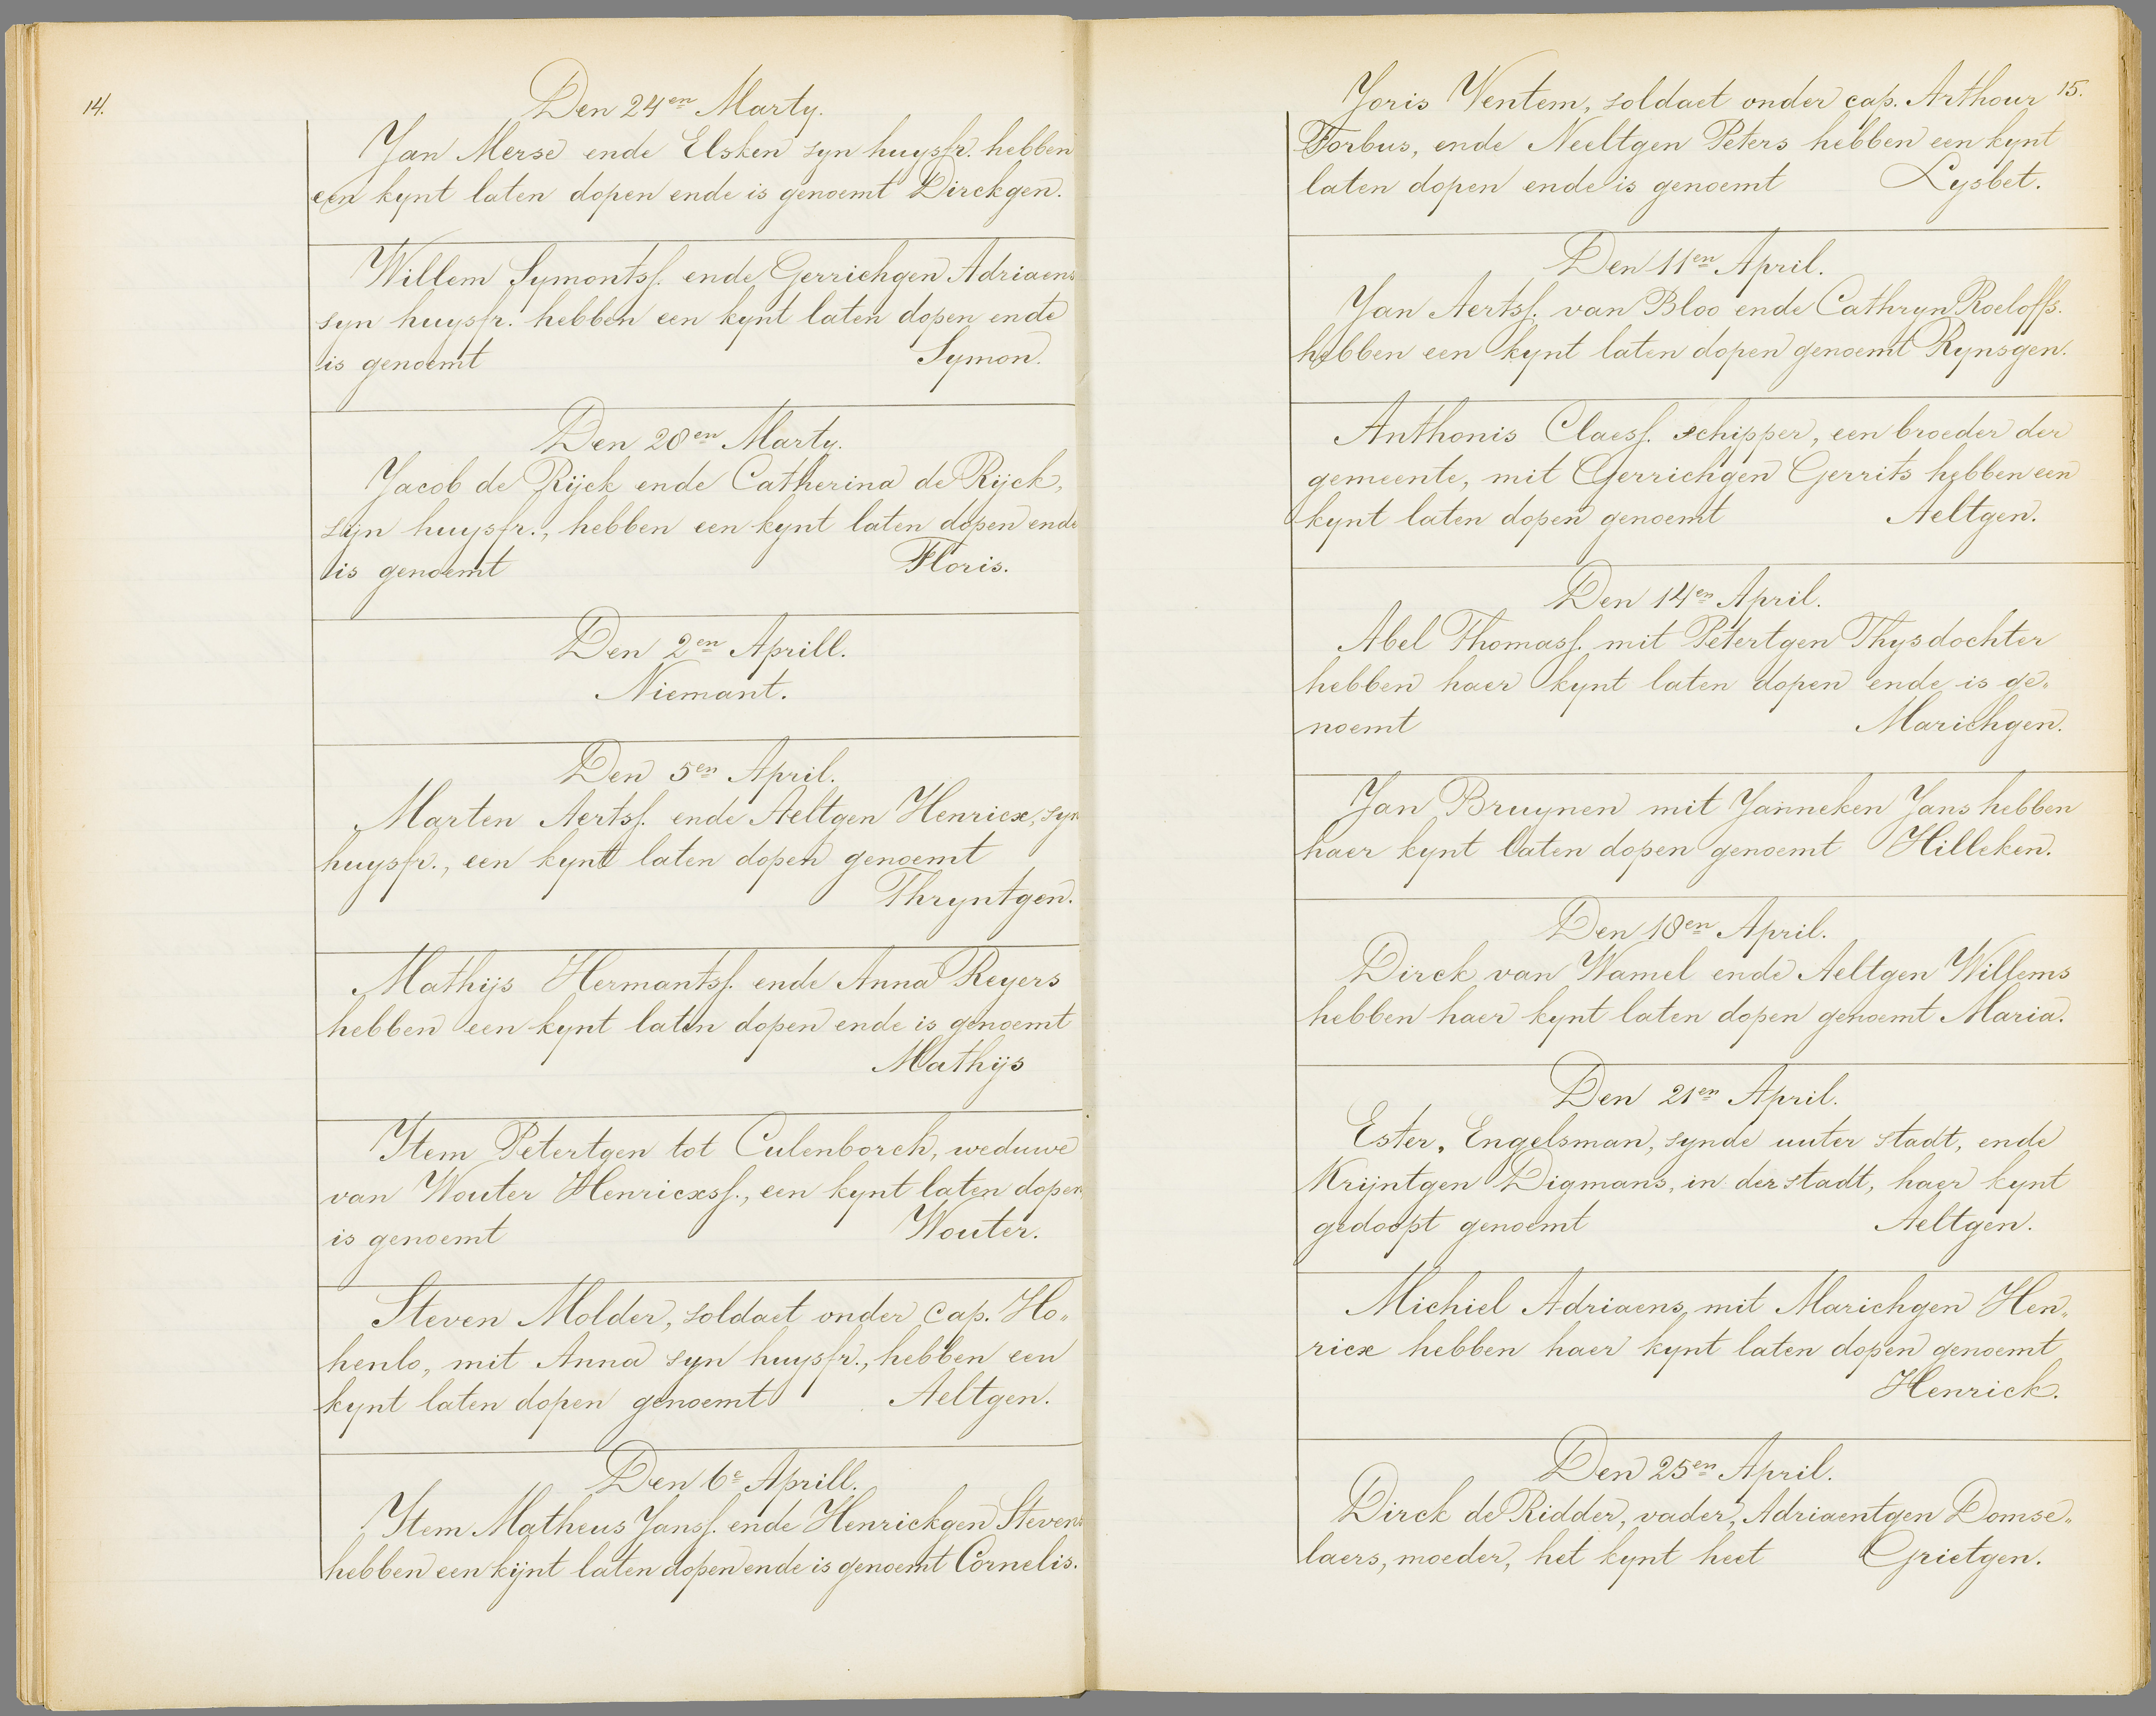 14.
Den 24en Marty.
Jan Merse ende Elsken syn huysfr. hebben
een kynt laten dopen ende is genoemt Dirckgen.
Willem Symontsf. ende Gerrichgen Adriaens
syn huysfr. hebben een kynt laten dopen ende
is genoemt Symon.
Den 28en Marty.
Jacob de Rijck ende Catherina de Rijck,
syn huysfr., hebben een kynt laten dopen ende
is genoemt Floris.
Den 2en Aprill.
Niemant.
Den 5en April.
Marten Aertsf. ende Aeltgen Henricx, syn
huysfr., een kynt laten dopen genoemt
Thryntgen.
Mathijs Hermantsf. ende Anna Reyers
hebben een kynt laten dopen ende is genoemt
Mathijs
Item Petertgen tot Culenborch, weduwe
van Wouter Henricxsf., een kynt laten dopen,
is genoemt Wouter.
Steven Molder, soldaet onder cap. Ho„
henlo, mit Anna syn huysfr., hebben een
kynt laten dopen genoemt Aeltgen.
Den 6e Aprill.
Item Matheus Jansf. ende Henrickgen Stevens
hebben een kijnt laten dopen ende is genoemt Cornelis.
15.
Joris Wentem, soldaet onder cap. Arthour
Forbus, ende Neeltgen Peters hebben een kynt
laten dopen ende is genoemt Lysbet.
Den 11en April.
Jan Aertsf. van Bloo ende Cathryn Roeloffs.
hebben een kynt laten dopen genoemt Rynsgen.
Anthonis Claesf. schipper, een broeder der
gemeente, mit Gerrichgen Gerrits hebben een
kynt laten dopen genoemt Aeltgen.
Den 14en April.
Abel Thomasf. mit Petertgen Thysdochter
hebben haer kynt laten dopen ende is ge„
noemt Marichgen.
Jan Bruynen mit Janneken Jans hebben
haer kynt laten dopen genoemt Hilleken.
Den 18en April.
Dirck van Wamel ende Aeltgen Willems
hebben haer kynt laten dopen genoemt Maria.
Den 21en April.
Ester, Engelsman, synde uuter stadt, ende
Krijntgen Digmans, in der stadt, haer kynt
gedoopt genoemt Aeltgen.
Michiel Adriaens mit Marichgen Hen„
ricx hebben haer kynt laten dopen genoemt
Henrick.
Den 25en April.
Dirck de Ridder, vader, Adriaentgen Domse„
laers, moeder, het kynt heet Grietgen.